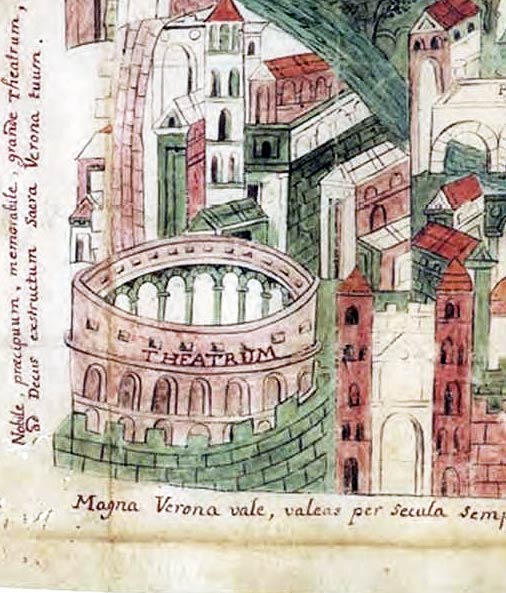 Nobile, præcipuum, memorabile, grande Theatrum,
ad Decus extructum Sacra Verona tuum.
THEATRUM
Magna Verona vale, valeas per secula semp